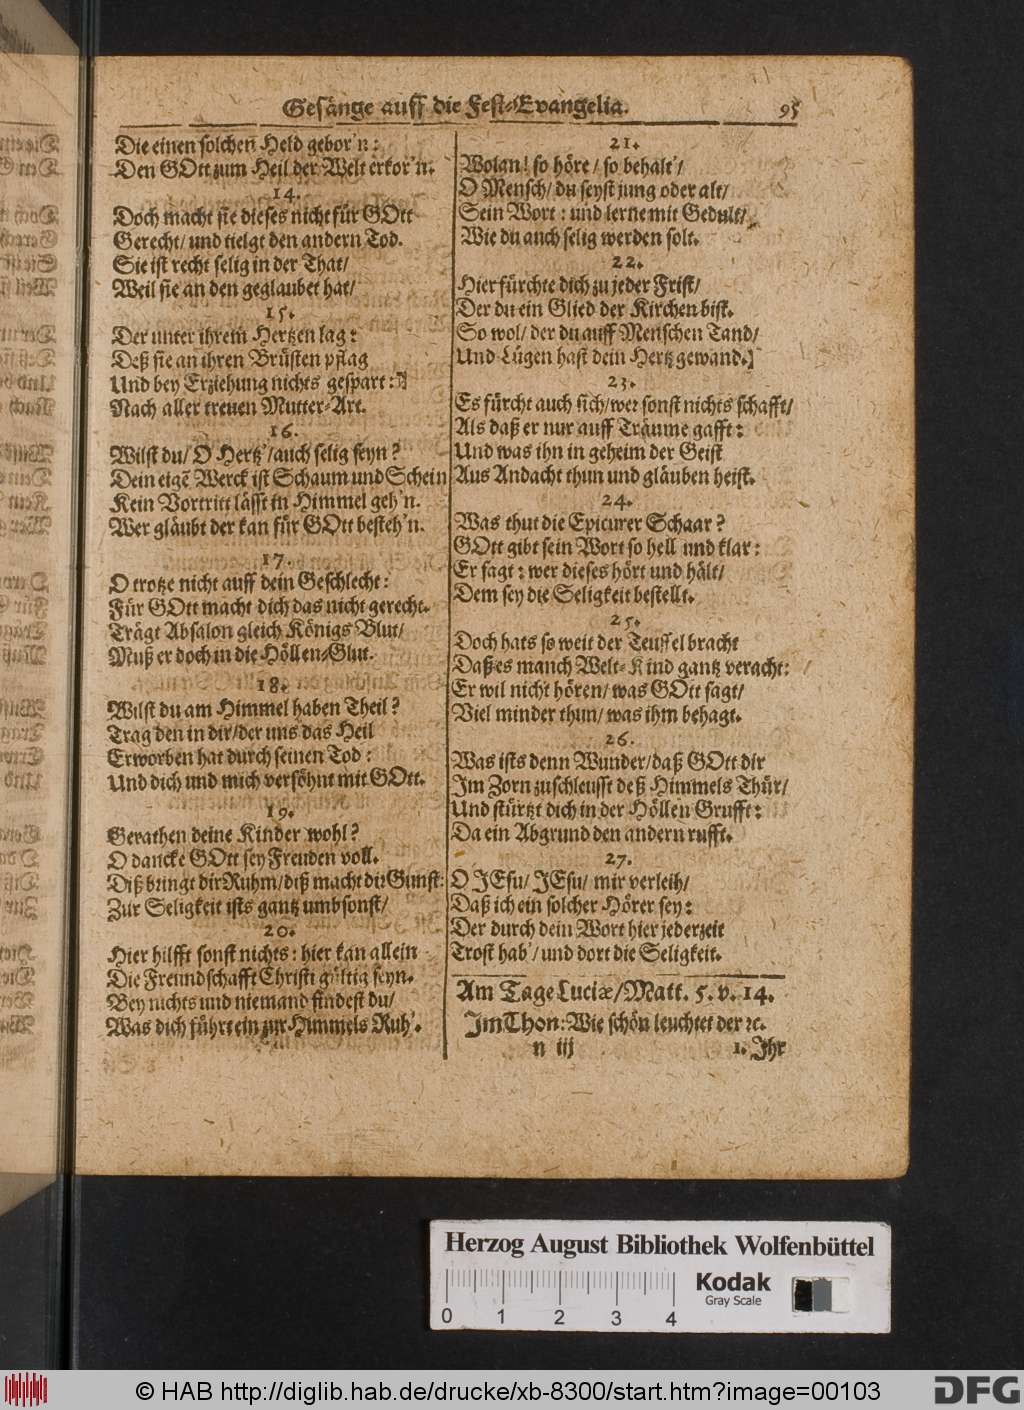 Gesänge auff die Fest-Evangelia. 95
Die einen solchen Held gebor'n:
Den GOtt zum Heil der Welt erkor'n.
14.
Doch macht sie dieses nicht für GOtt
Gerecht/ und tielgt den andern Tod.
Sie ist recht selig in der That/
Weil sie an den geglaubet hat/
15.
Der unter ihrem Hertzen lag:
Deß sie an ihren Brüsten pflag
Und bey Erziehung nichts gespart:
Nach aller treuen Mutter-Art.
16.
Wilst du/ O Hertz'/ auch selig seyn?
Dein eigē Werck ist Schaum und Schein
Kein Vortritt lässt in Himmel geh'n.
Wer gläubt der kan für GOtt besteh'n.
17.
O trotze nicht auff dein Geschlecht:
Für GOtt macht dich das nicht gerecht.
Trägt Absalon gleich Königs Blut/
Muß er doch in die Höllen-Glut.
18.
Wilst du am Himmel haben Theil?
Trag den in dir/ der uns das Heil
Erworben hat durch seinen Tod:
Und dich und mich versöhnt mit GOtt.
19.
Gerathen deine Kinder wohl?
O dancke GOtt sey Freuden voll.
Diß bringt dir Ruhm/ diß macht dir Gunst:
Zur Seligkeit ists gantz umbsonst/
20.
Hier hilfft sonst nichts: hier kan allein
Die Freundschafft Christi gültig seyn.
Bey nichts und niemand findest du/
Was dich führt ein zur Himmels Ruh'.
21.
Wolan! so höre/ so behalt'/
O Mensch/ du seyst jung oder alt/
Sein Wort: und lerne mit Gedult/
Wie du auch selig werden solt.
22.
Hier fürchte dich zu jeder Frist/
Der du ein Glied der Kirchen bist.
So wol/ der du auff Menschen Tand/
Und Lügen hast dein Hertz gewand.
23.
Es fürcht auch sich/ wer sonst nichts schafft/
Als daß er nur auff Träume gafft:
Und was ihn in geheim der Geist
Aus Andacht thun und gläuben heist.
24.
Was thut die Epicurer Schaar?
GOtt gibt sein Wort so hell und klar:
Er sagt: wer dieses hört und hält/
Dem sey die Seligkeit bestellt.
25.
Doch hats so weit der Teuffel bracht
Daß es manch Welt-Kind gantz veracht:
Er wil nicht hören/ was GOtt sagt/
Viel minder thun/ was ihm behagt.
26.
Was ists denn Wunder/ daß GOtt dir
Im Zorn zuschleusst deß Himmels Thür/
Und stürtzt dich in der Höllen Grufft:
Da ein Abgrund den andern rufft.
27.
O JEsu/ JEsu/ mir verleih/
Daß ich ein solcher Hörer sey:
Der durch dein Wort hier jederzeit
Trost hab'/ und dort die Seligkeit.
Am Tage Luciæ/ Matt. 5. v. 14.
Im Thon: Wie schön leuchtet der ꝛc.
n iij 1. Ihr
Herzog August Bibliothek Wolfenbüttel
Kodak
Gray Scale
0 1 2 3 4
© HAB http://diglib.hab.de/drucke/xb-8300/start.htm?image=00103
DFG